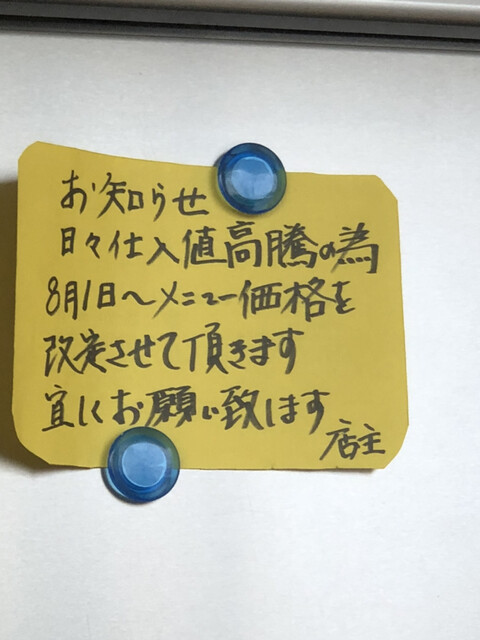 お知らせ
日々仕入値高騰の為
8月1日〜メニュー価格を
改定させて頂きます
宜しくお願い致します
店主